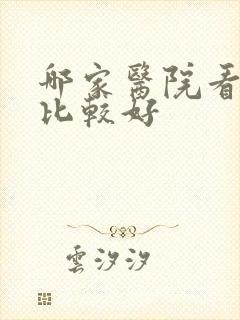 哪家醫院看
比較好
雲汐汐